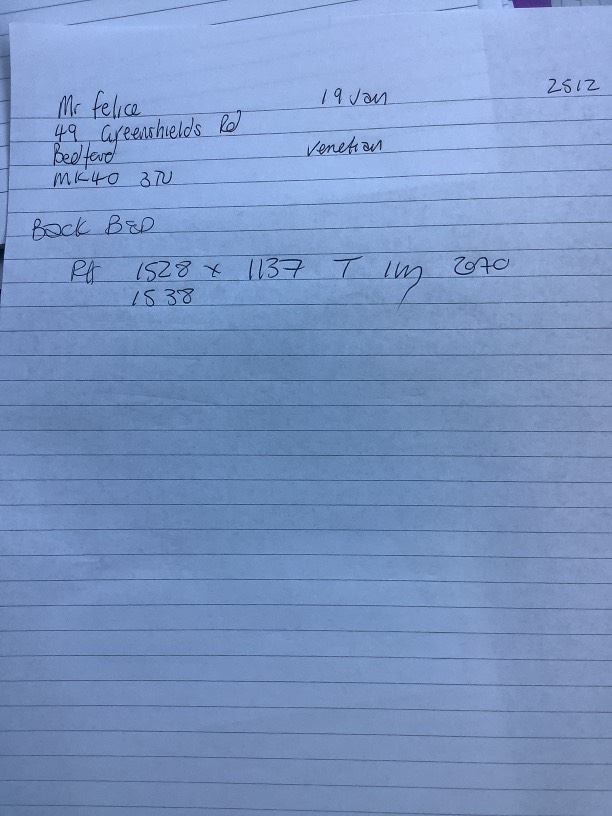 Mr Felice 19 Jan 2512
49 Greenshields Rd
Bedford Venetian
MK40 3TU
BACK BED
1528 x 1137 T 2070
1538